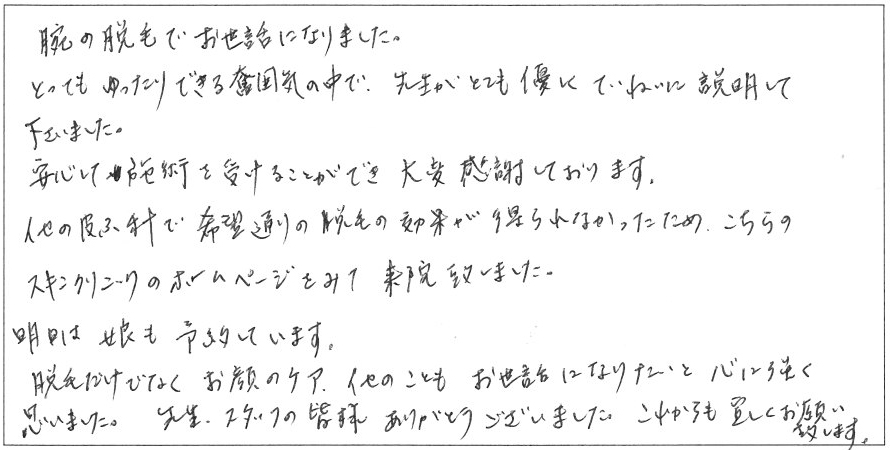 腕の脱毛でお世話になりました。
とってもゆったりできる奮囲気の中で、先生がとても優しくていねいに説明して
下さいました。
安心して施術を受けることができ大変感謝しております。
他の皮ふ科で希望通りの脱毛の効果が得られなかったため、こちらの
スキンクリニックのホームページをみて来院致しました。
明日は娘も予約しています。
脱毛だけでなくお顔のケア、他のこともお世話になりたいと心に強く
思いました。先生、スタッフの皆様ありがとうございました。これからも宜しくお願い
致します。